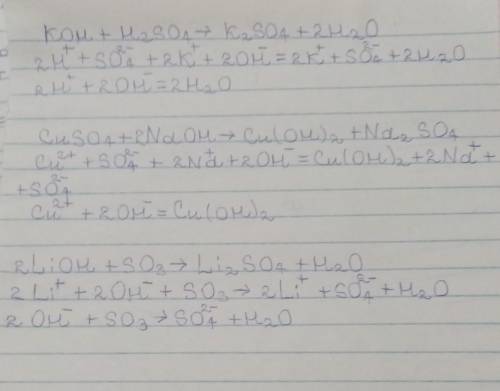 KOH + H₂SO₄ → K₂SO₄ + 2H₂O
2H⁺ + SO₄²⁻ + 2K⁺ + 2OH⁻ = 2K⁺ + SO₄²⁻ + 2H₂O
2H⁺ + 2OH⁻ = 2H₂O
CuSO₄ + 2NaOH → Cu(OH)₂ + Na₂SO₄
Cu²⁺ + SO₄²⁻ + 2Na⁺ + 2OH⁻ = Cu(OH)₂ + 2Na⁺ +
+ SO₄²⁻
Cu²⁺ + 2OH⁻ = Cu(OH)₂
2LiOH + SO₃ → Li₂SO₄ + H₂O
2Li⁺ + 2OH⁻ + SO₃ → 2Li⁺ + SO₄²⁻ + H₂O
2OH⁻ + SO₃ → SO₄²⁻ + H₂O